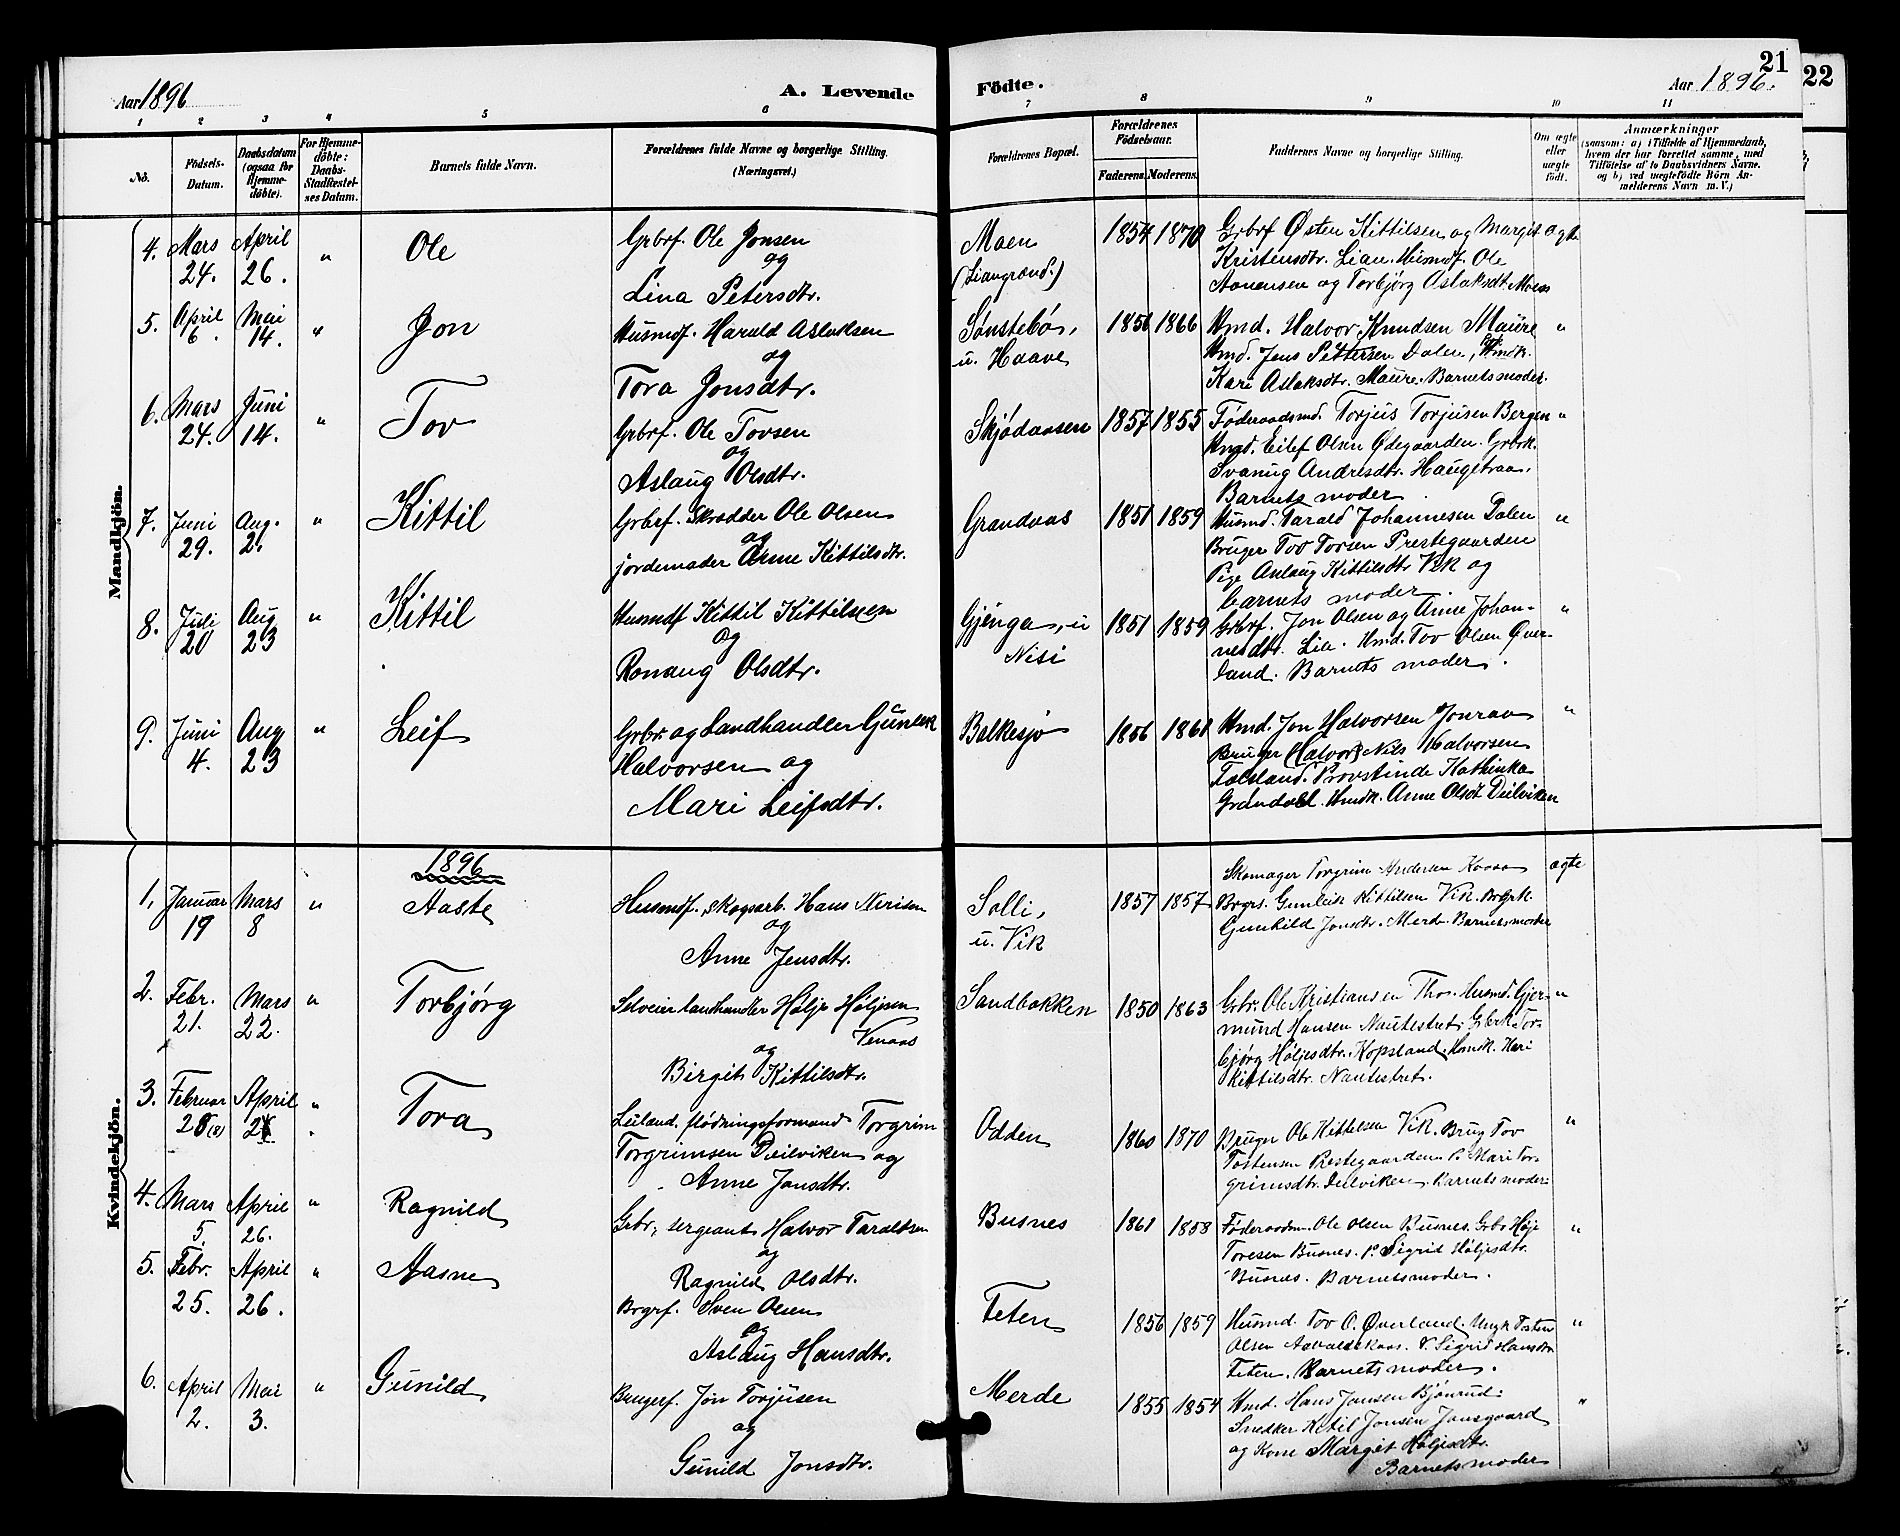 21
22
Aar 1896
A. Levende
Fødte.
Aar 1896.
1 2 3 4 5 6 7 8 9 10 11
No.
Födsels-Datum.
Daabsdatum (ogsaa for Hjemmedöbte).
For Hjemmedöbte: Daabs-Stadfæstelses Datum.
Barnets fulde Navn.
Forældrenes fulde Navne og borgerlige Stilling. (Næringsvei.)
Forældrenes Bopæl.
Forældrenes Födselsaar.
Faderens. Moderens.
Faddernes Navne og borgerlige Stilling.
Om ægte eller uægte födt.
Anmærkninger
(saasom: a) i Tilfælde af Hjemmedaab,
hvem der har forrettet samme, med
Tilföielse af to Daabsvidners Navne.
og b) ved uægtefödte Börn An-
melderens Navn m. V.)
Mandkjön.
4. Mars 24. April 26. " Ole
Grbrf. Ole Jonsen
og
Lina Petersdtr.
Moen
(Liangrænd.)
1854 1870
Grbrf Østen Kittilsen og Margit ægte
Kristensdtr. Lian. Husmdf. Ole
Aanensen og Torbjørg Aslaksdt. Moen
5. April 6. Mai 14. " Jon
Husmdf. Harald Aslaksen
og
Tora Jonsdtr.
Sønstebø,
u. Haave
1856 1866
Umd. Halvor Knudsen Maure "
Umd. Jens Pettersen Dalen,
Kari Aslaksdtr. Maure. Barnets moder.
6. Mars 24. Juni 14. " Tov
Grbrf. Ole Tovsen
og
Aslaug Olsdtr.
Skjødaasen
1857 1855
Føderaadsmd. Torjus Torjusen Bergen "
Umgd. Eilef Olsen Ødegaarden. Grbrk.
Svanug Andresdtr. Haugetraa.
Barnets moder
7. Juni 29. Aug. 2. " Kittil
Grbrf. Skrædder Ole Olsen
og
jordemoder Anne Kittilsdtr.
Grandaas
1851 1859
Husmd. Tarald Johannesen Dalen "
Bruger Tov Tovsen Prestegaarden
Pige Aslaug Kittilsdtr Vik og
barnets moder.
8. Juli 20 Aug 23 " Kittil
Husmdf Kittil Kittilsen
og
Ronaug Olsdtr.
Gjenga, u
Nisi
1851 1859
Grbrf. Jon Olsen og Anne Johan- "
nesdtr. Lie. Umd. Tov Olsen Øver-
land. Barnets moder.
9. Juni 4. Aug 23 " Leif
Grbr og Landhandler Gunleik
Halvorsen og
Mari Leifsdtr.
Bolkesjø
1856 1861
Umd. Jon Halvorsen Jonraa "
Bruger (Halvor) Nils Halvorsen
Folsland. Provstinde Kathinka
Grøndal. Umdk. Anne Olsdt Deilviken
Kvindekjön.
1896
1, Januar 19 Mars 8 " Aaste
Husmdf. skogsarb. Hans Nirisen
og
Anne Jensdtr.
Solli,
u. Vik
1857 1857
Skomager Torgrim Andersen Kaasa ægte
Brgrs. Gunleik Kittilsen Vik. Brgrk.
Gunhild Jonsdtr. Merde. Barnets moder
2. Febr. 21. Mars 22. " Torbjørg
Selveier landhandler Hølje Høljesen
Venaas
og
Birgit Kittilsdtr.
Sandbakken
1850 1863
Grbr. Ole Kristiansen Tho. Husmd. Gjer- "
mund Hansen Nautestret. Gbrk Tor-
bjørg Høljesdtr. Kopsland. Husmdk. Kari
Kittilsdtr. Nautestret.
3. Februar 28 (8) April " Tora
Leiland. flødningsformand Torgrim
Torgrimsen Deilviken og
Anne Jonsdtr.
Odden
1860 1870
Bruger Ole Kittelsen Vik. Brug Tov "
Tostensen Prestegaarden. P. Mari Tor-
grimsdtr. Deilviken. Barnets moder
4. Mars 5. April 26. " Ragnild
Grbr, sergeant Halvor Taraldsen
og
Ragnild Olsdtr.
Busnes
1861 1858
Føderaadsm. Ole Olsen Busnes. Grbr Hølje "
Toresen Busnes. P. Sigrid Høljesdtr.
Busnes. Barnets moder.
5. Febr. 25. April 26. " Aasne
Brgrf. Sven Olsen
og
Aslaug Hansdtr.
Teten
1856 1859
Husmd. Tov O. Øverland. Ungk Tosten "
Olsen. P. Sigrid Hansdtr
Teten. Barnets moder.
6. April 2. Mai 3. " Gunild
Brugerf. Jon Torjusen
og
Gunild Jonsdtr.
Merde
1855 1854
Umd. Hans Jansen Bjönrud. "
Snedker Ketil Jonsen Jonsgaard
og Kone Margit Høljesdtr.
Barnets moder